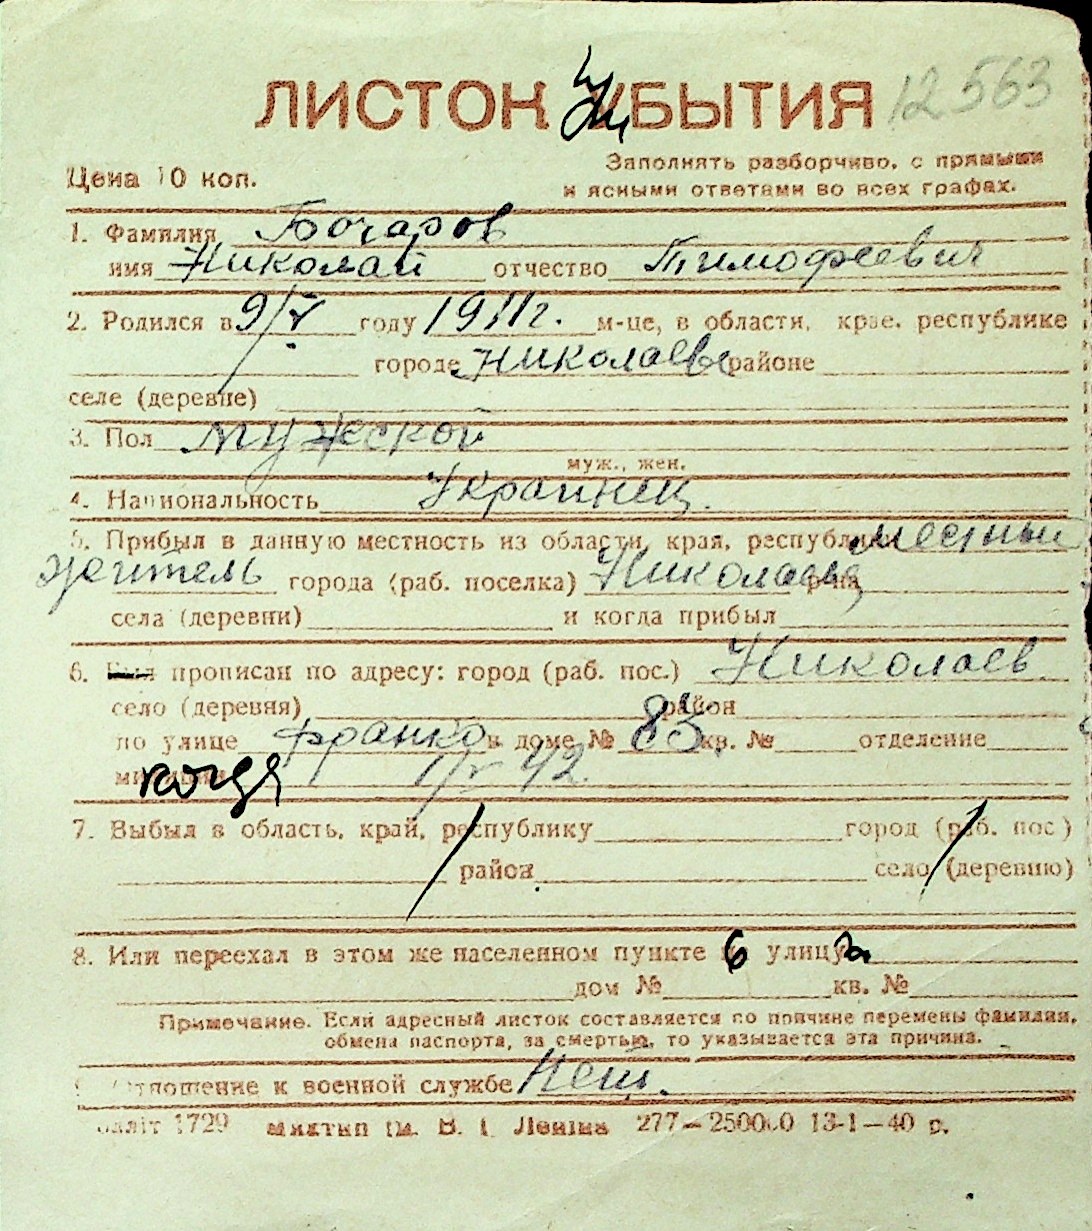 ЛИСТОК УБЫТИЯ 12563
Цена 10 коп.
Заполнять разборчиво, с прямыми
и ясными ответами во всех графах.
1. Фамилия Бочаров
имя Николай отчество Тимофеевич
2. Родился в 9/V году 1911 г. м-це, в области, крае, республике
городе Николаеве районе
селе (деревне)
3. Пол мужской
муж., жен.
4. Национальность Украинец.
5. Прибыл в данную местность из области, края, республики местный
житель города (раб. поселка) Николаева р-на
села (деревни) и когда прибыл
6. Был прописан по адресу: город (раб. пос.) Николаев
село (деревня) район
по улице Франко в доме № 83 кв. № отделение
милиции когда 1/V 42.
7. Выбыл в область, край, республику город (раб. пос.)
район село (деревню)
8. Или переехал в этом же населенном пункте 6 улицу
дом № кв. №
Примечание. Если адресный листок составляется по причине перемены фамилии,
обмена паспорта, за смертью, то указывается эта причина.
Отношение к военной службе Нет.
1729 В. І. Леніна 277—250000 13-1—40 р.